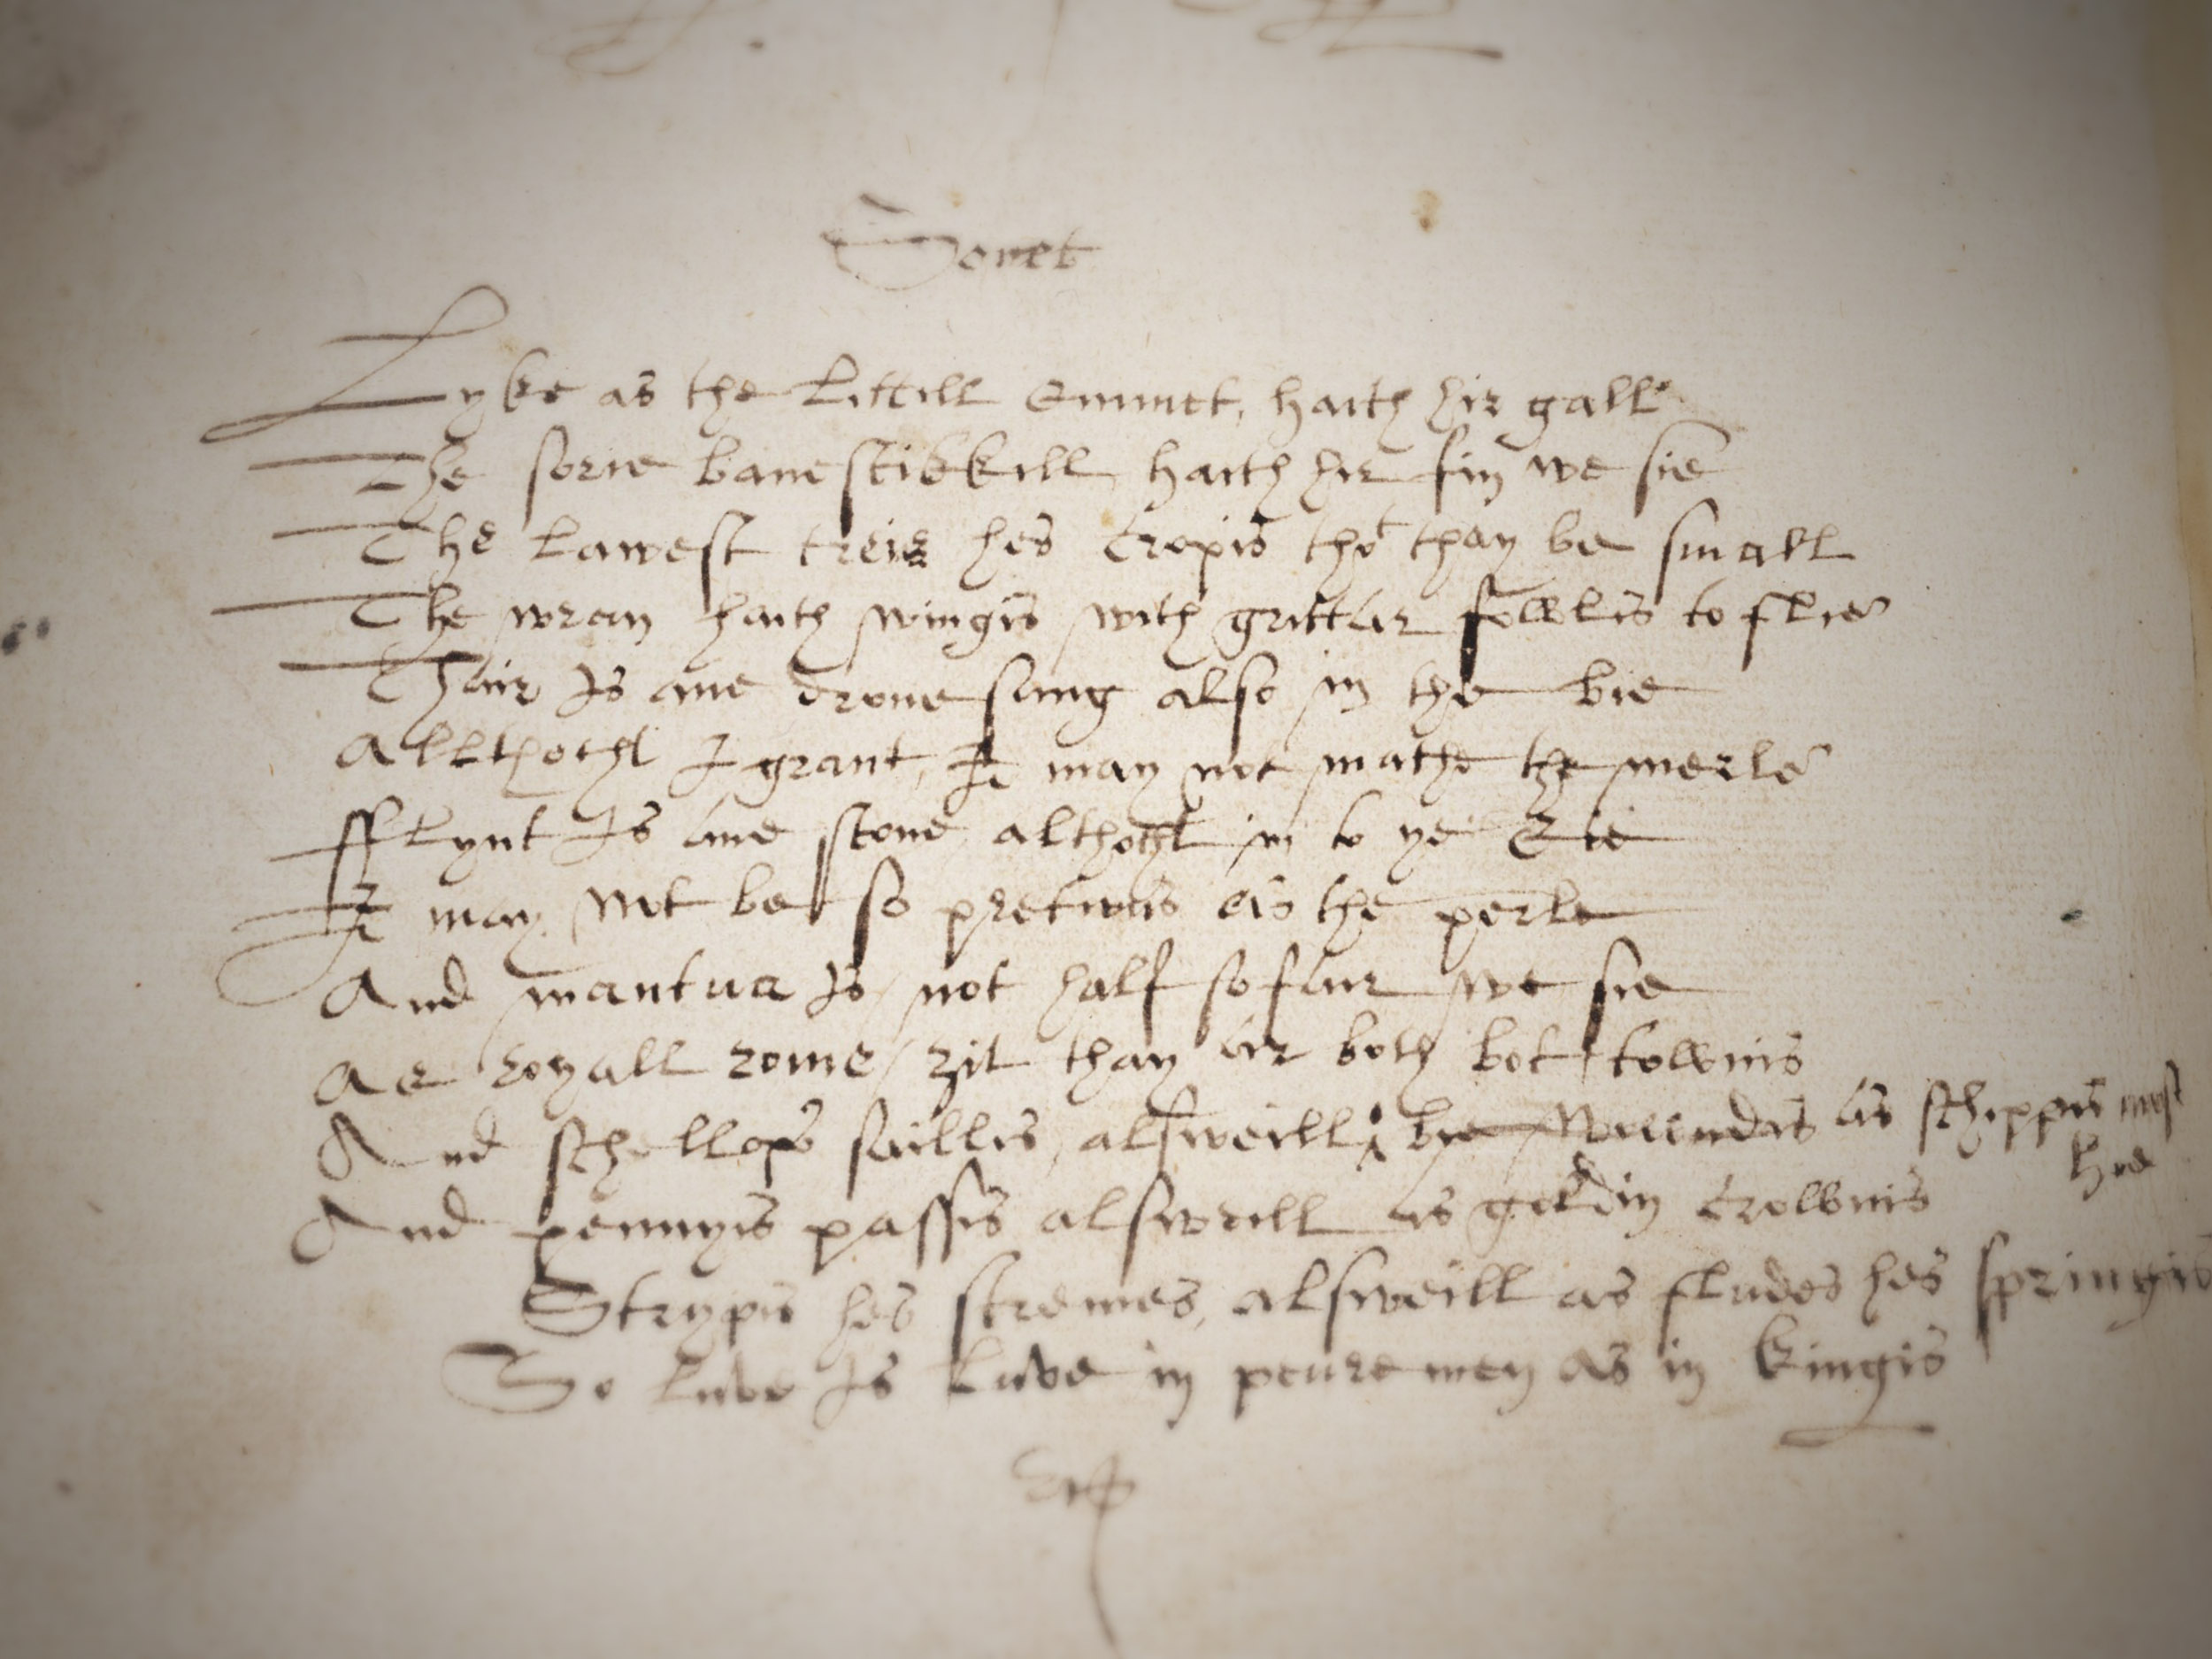 Sonet
Lyke as the Littill Emmet, haith hir gall
The sorie banestikkill haith hir fin we sie
The Lawest treis hes cropis thot thay be small
The wran haith wingis with grittar fowlis to flie
Thair Is ane drone sang also in the bie
Allthocht I grant, It may not mathe the merle
fflynt Is ane stone althocht in to ye Eie
It may not be so pretius as the perle
And mantua Is not half so fair we sie
As royall rome / zit thay ar both bot townis
And schellops saillis, alsweill as schippis most
hie
And pennyis passis alsweill as goldin crownis
Strypis hes stremes, alsweill as fludes hes springis
So luve Is luve in peure men as in kingis